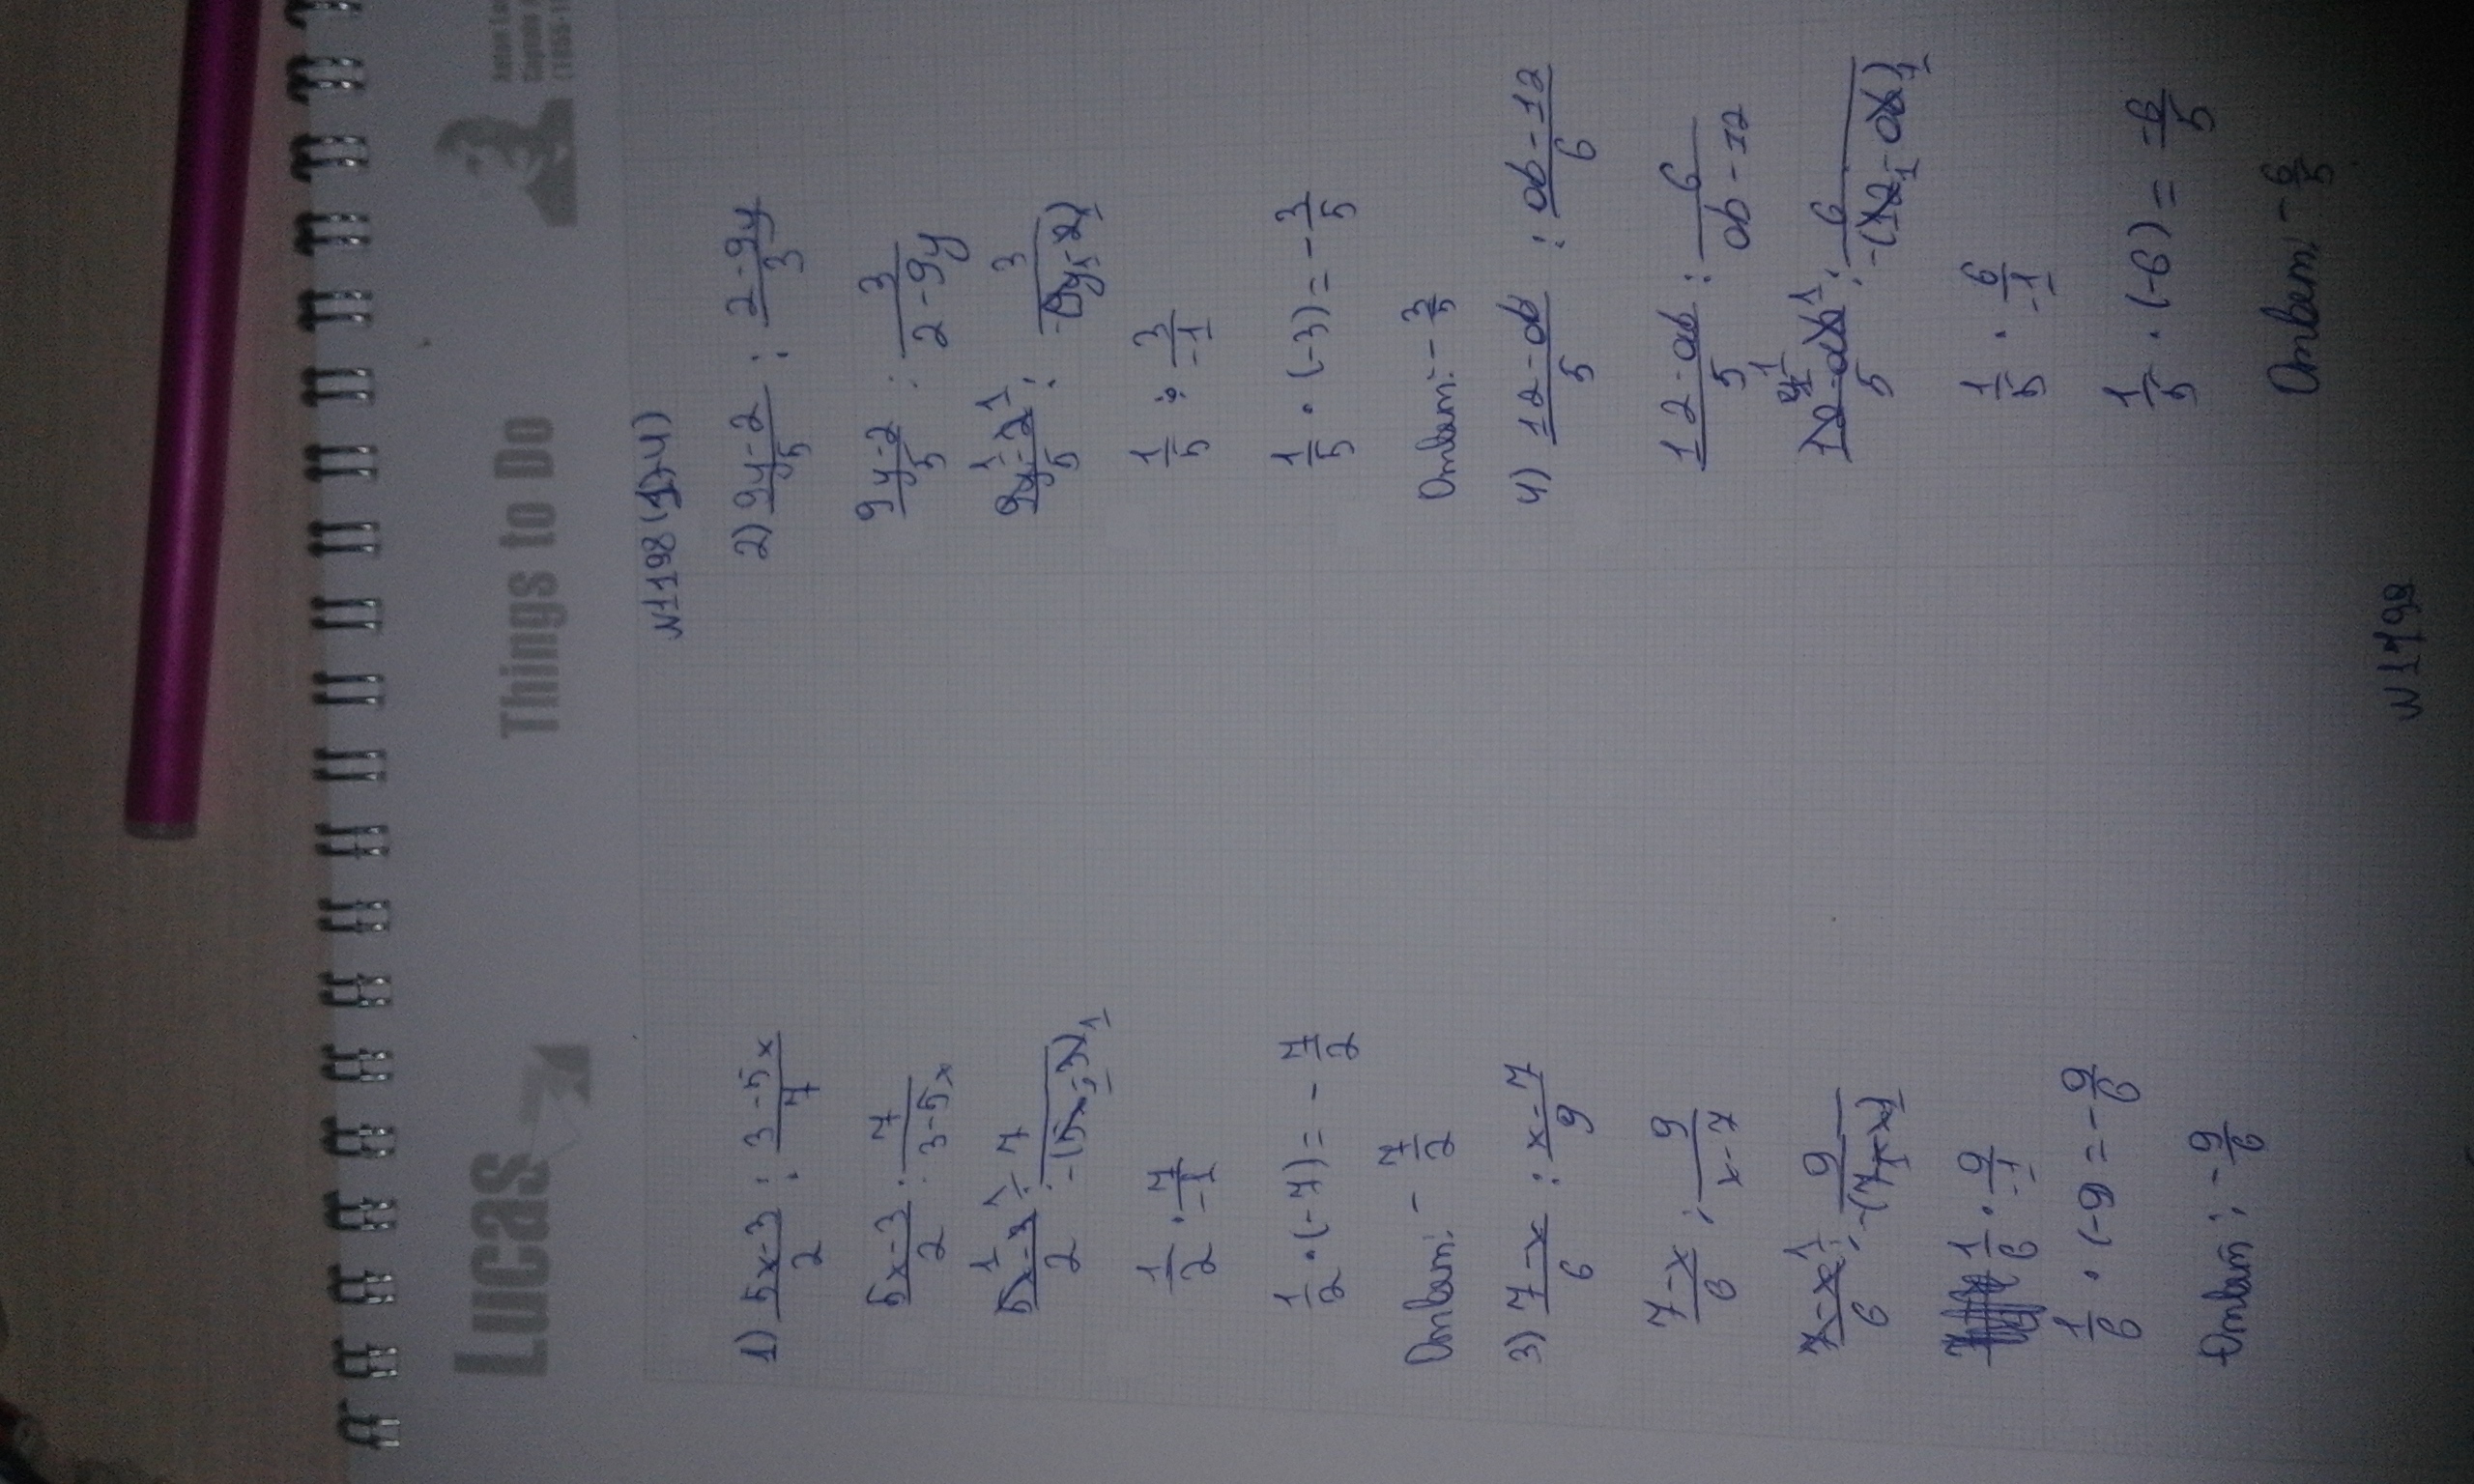 Lucas
Things to Do
N1198 (1-4)
1) (5x-3)/2 : (3-5x)/7
(5x-3)/2 : 7/(3-5x)
(5x-3)/2 : 7/-(5x-3)
1/2 · 7/-1
1/2 · (-7) = -7/2
Ответ: -7/2
2) (9y-2)/5 : (2-9y)/3
(9y-2)/5 : 3/(2-9y)
(9y-2)/5 : 3/-(9y-2)
1/5 : 3/-1
1/5 · (-3) = -3/5
Ответ: -3/5
3) (7-x)/6 : (x-7)/9
(7-x)/6 : 9/(x-7)
(7-x)/6 : 9/-(7-x)
1/6 · 9/-1
1/6 · (-9 = -9/6
Ответ: -9/6
4) (12-ab)/5 : (ab-12)/6
(12-ab)/5 : 6/(ab-12)
(12-ab)/5 : 6/-(12-ab)
1/5 · 6/-1
1/5 · (-6) = -6/5
Ответ: -6/5